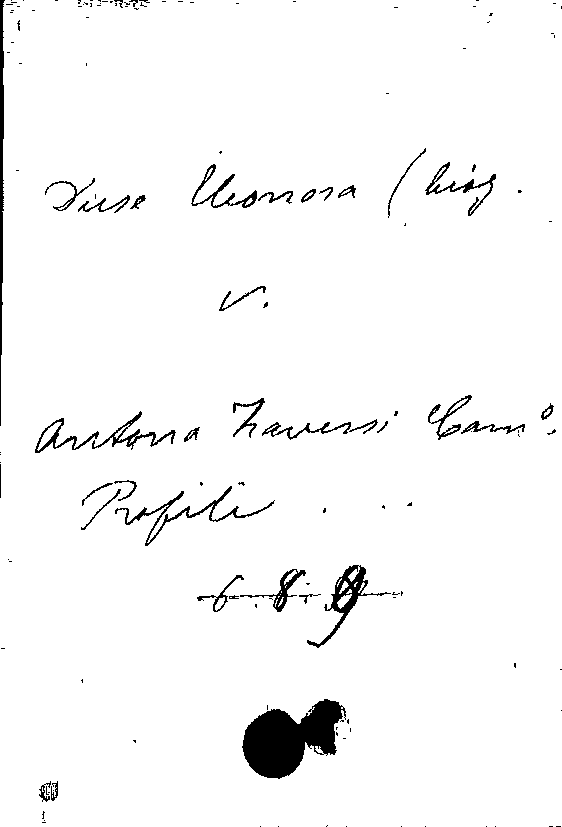 Duse Eleonora (biog.
v.
Antona Traversi Cam°.
Profili . . .
6.8.9